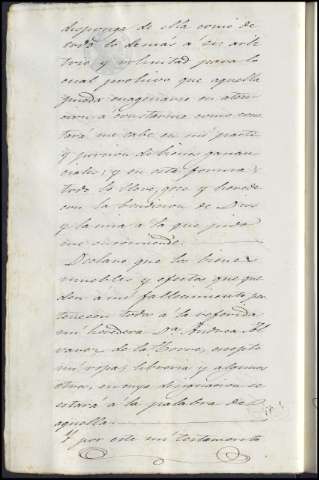 disponga de ella como de
todo lo demás á su arbi
trio y voluntad para lo
cual prohivo que aquella
pueda enagenarse en aten
cion á constarme como cons
tará me cabe en mi parte
y porcion de bienes ganan
ciales; y en esta forma
todo lo lleve, goce y herede
con la bendicion de Dios
y la mia á la que pido
me encomiende.
Declaro que los bienes
muebles y efectos que que
den á mi fallecimiento per
tenecen todos á la referida
mi heredera Dª Andrea Al
varez de la Torre, escepto
mi ropa, libreria y algunas
otras, en cuya designacion se
estará á la palabra de
aquella.
Y por este mi testamento